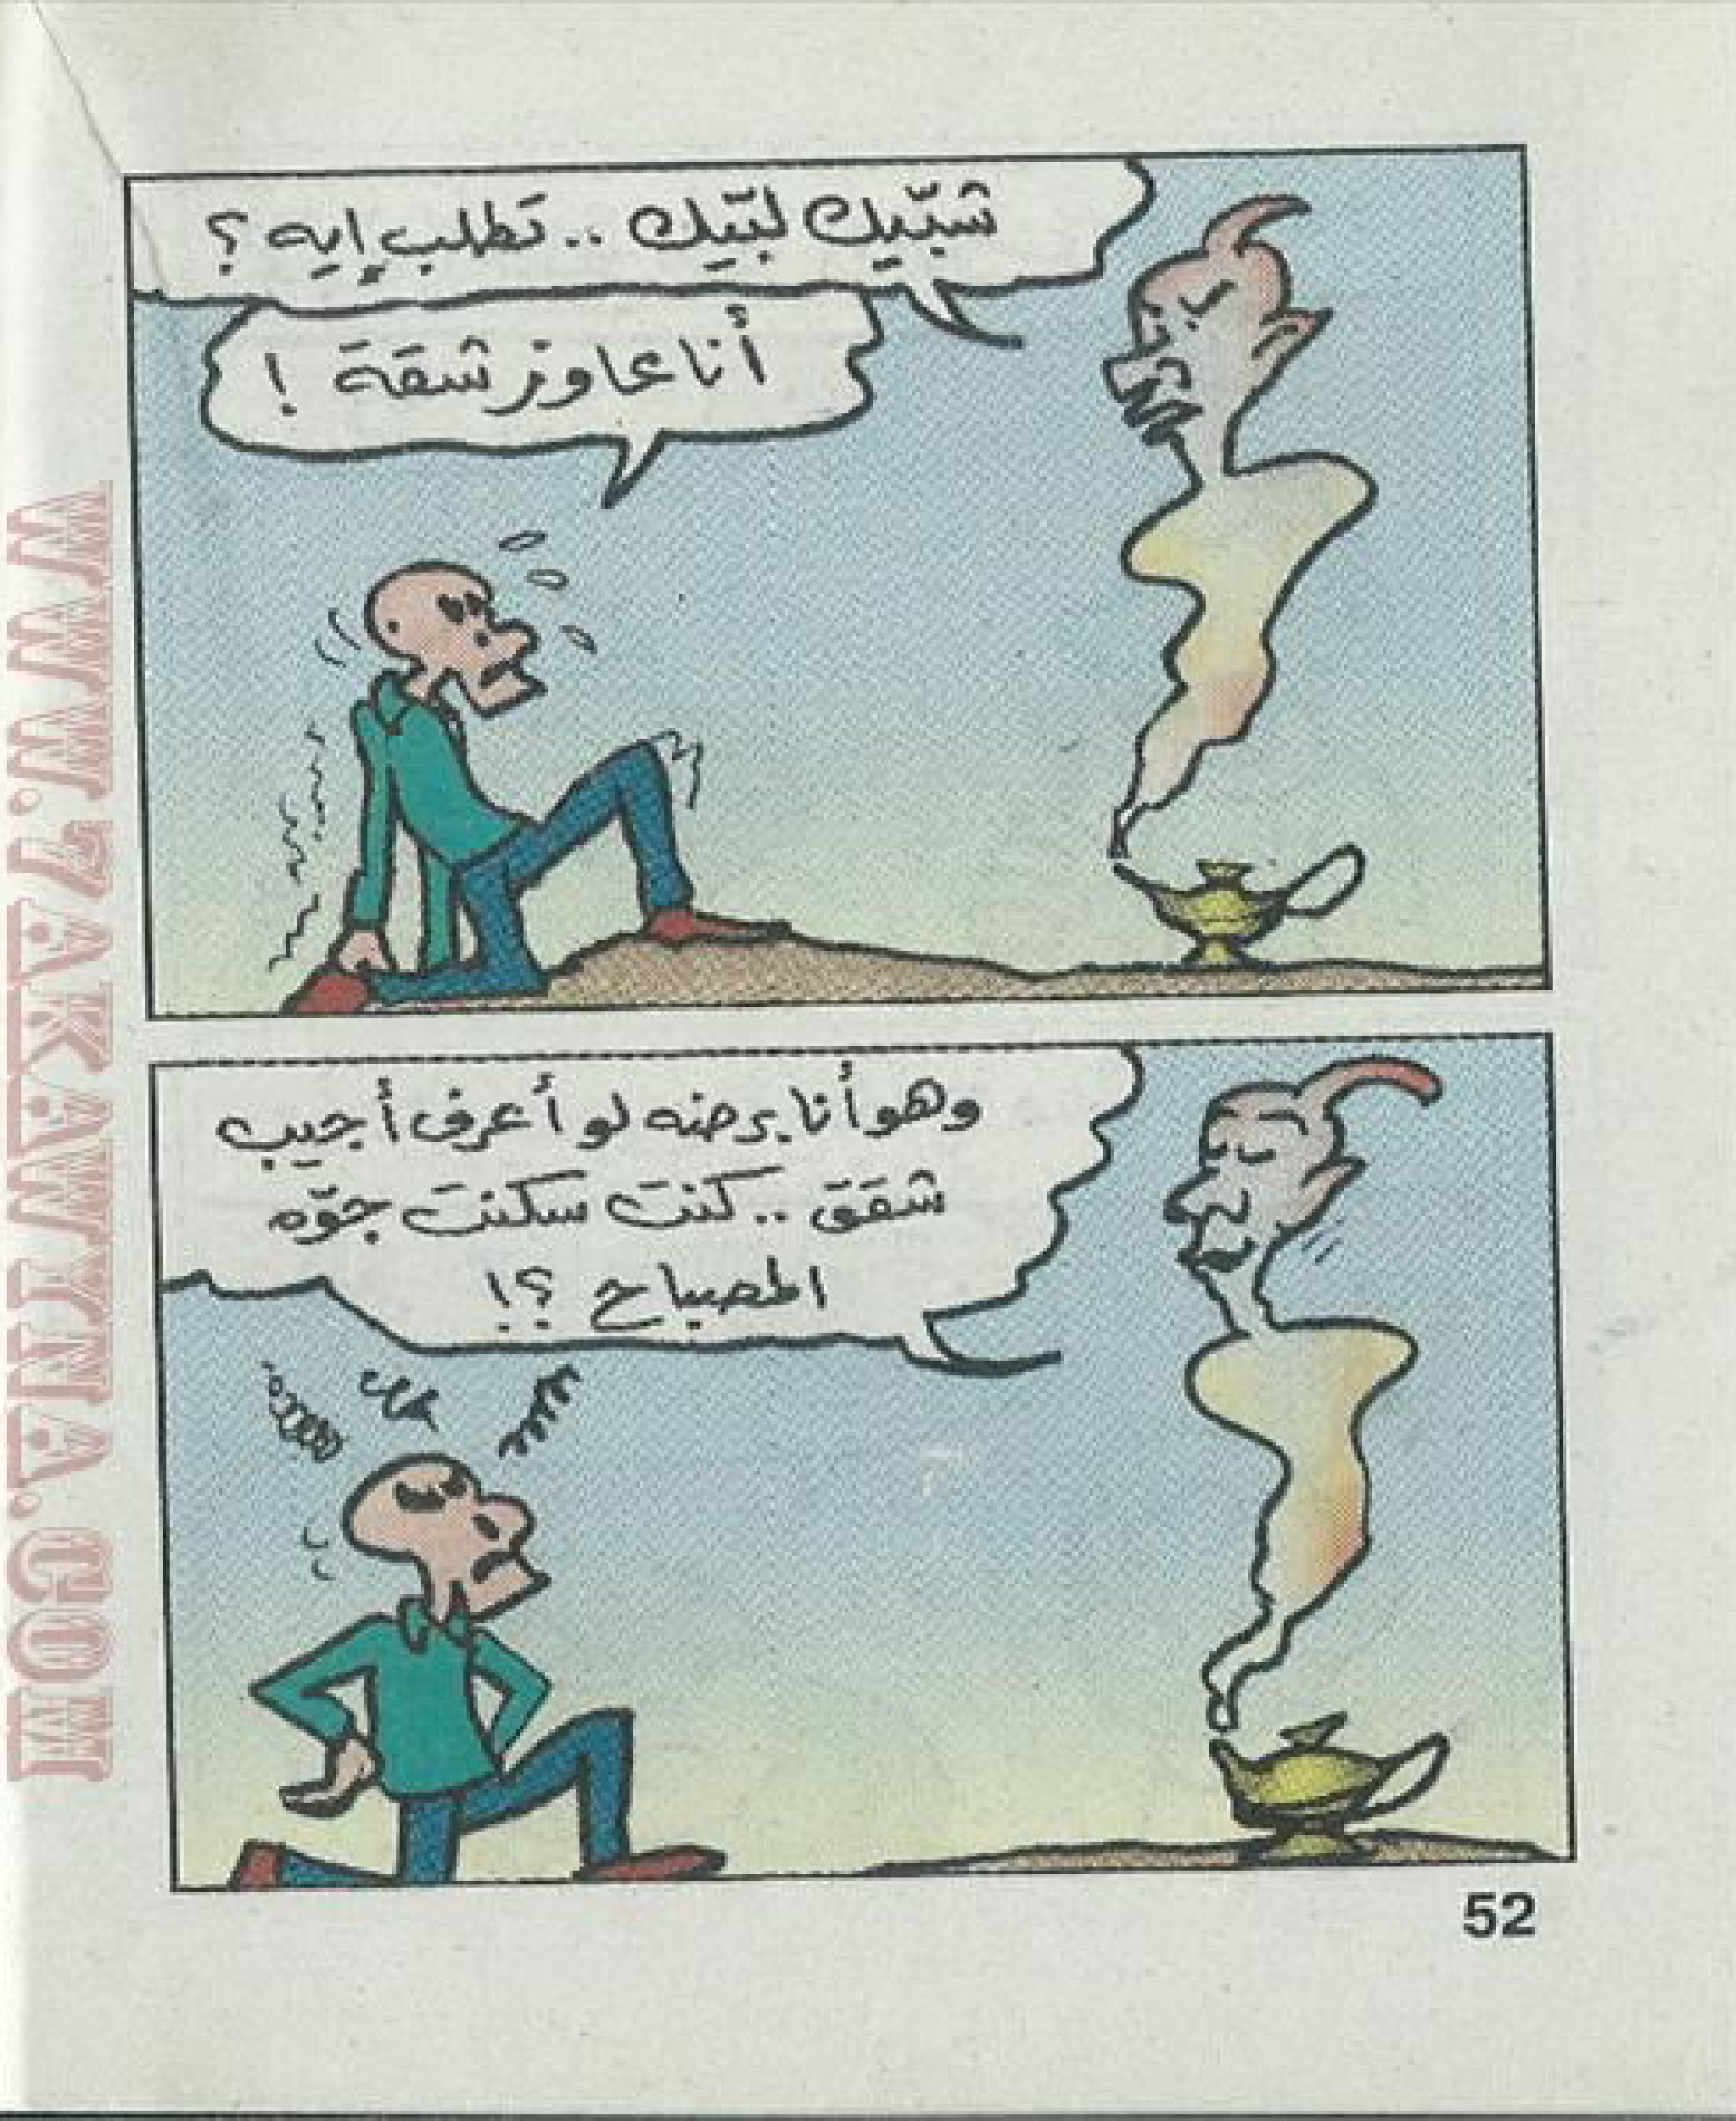 شبّيك لبّيك .. تطلب إيه ؟
أنا عاوز شقة !
وهو أنا برضه لو أعرف أجيب
شقق .. كنت سكنت جوّه
المصباح ؟!
52
WWW.7AKAWINA.COM